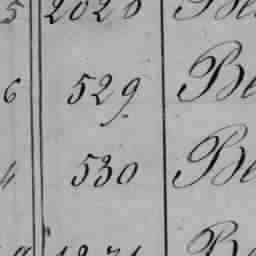 5 2028 Be
6 529 Be
4 530 Be